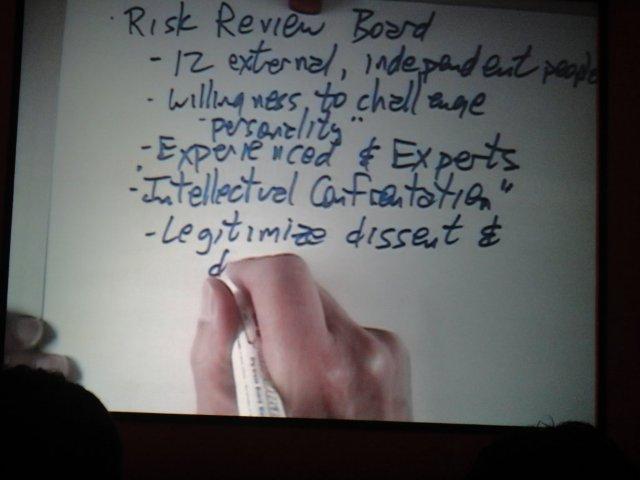 Risk Review Board
- 12 external, independent people
- willingness to challenge
- personality"
- Experienced & Experts
- "Intellectual Confrontation"
- Legitimize dissent &
d